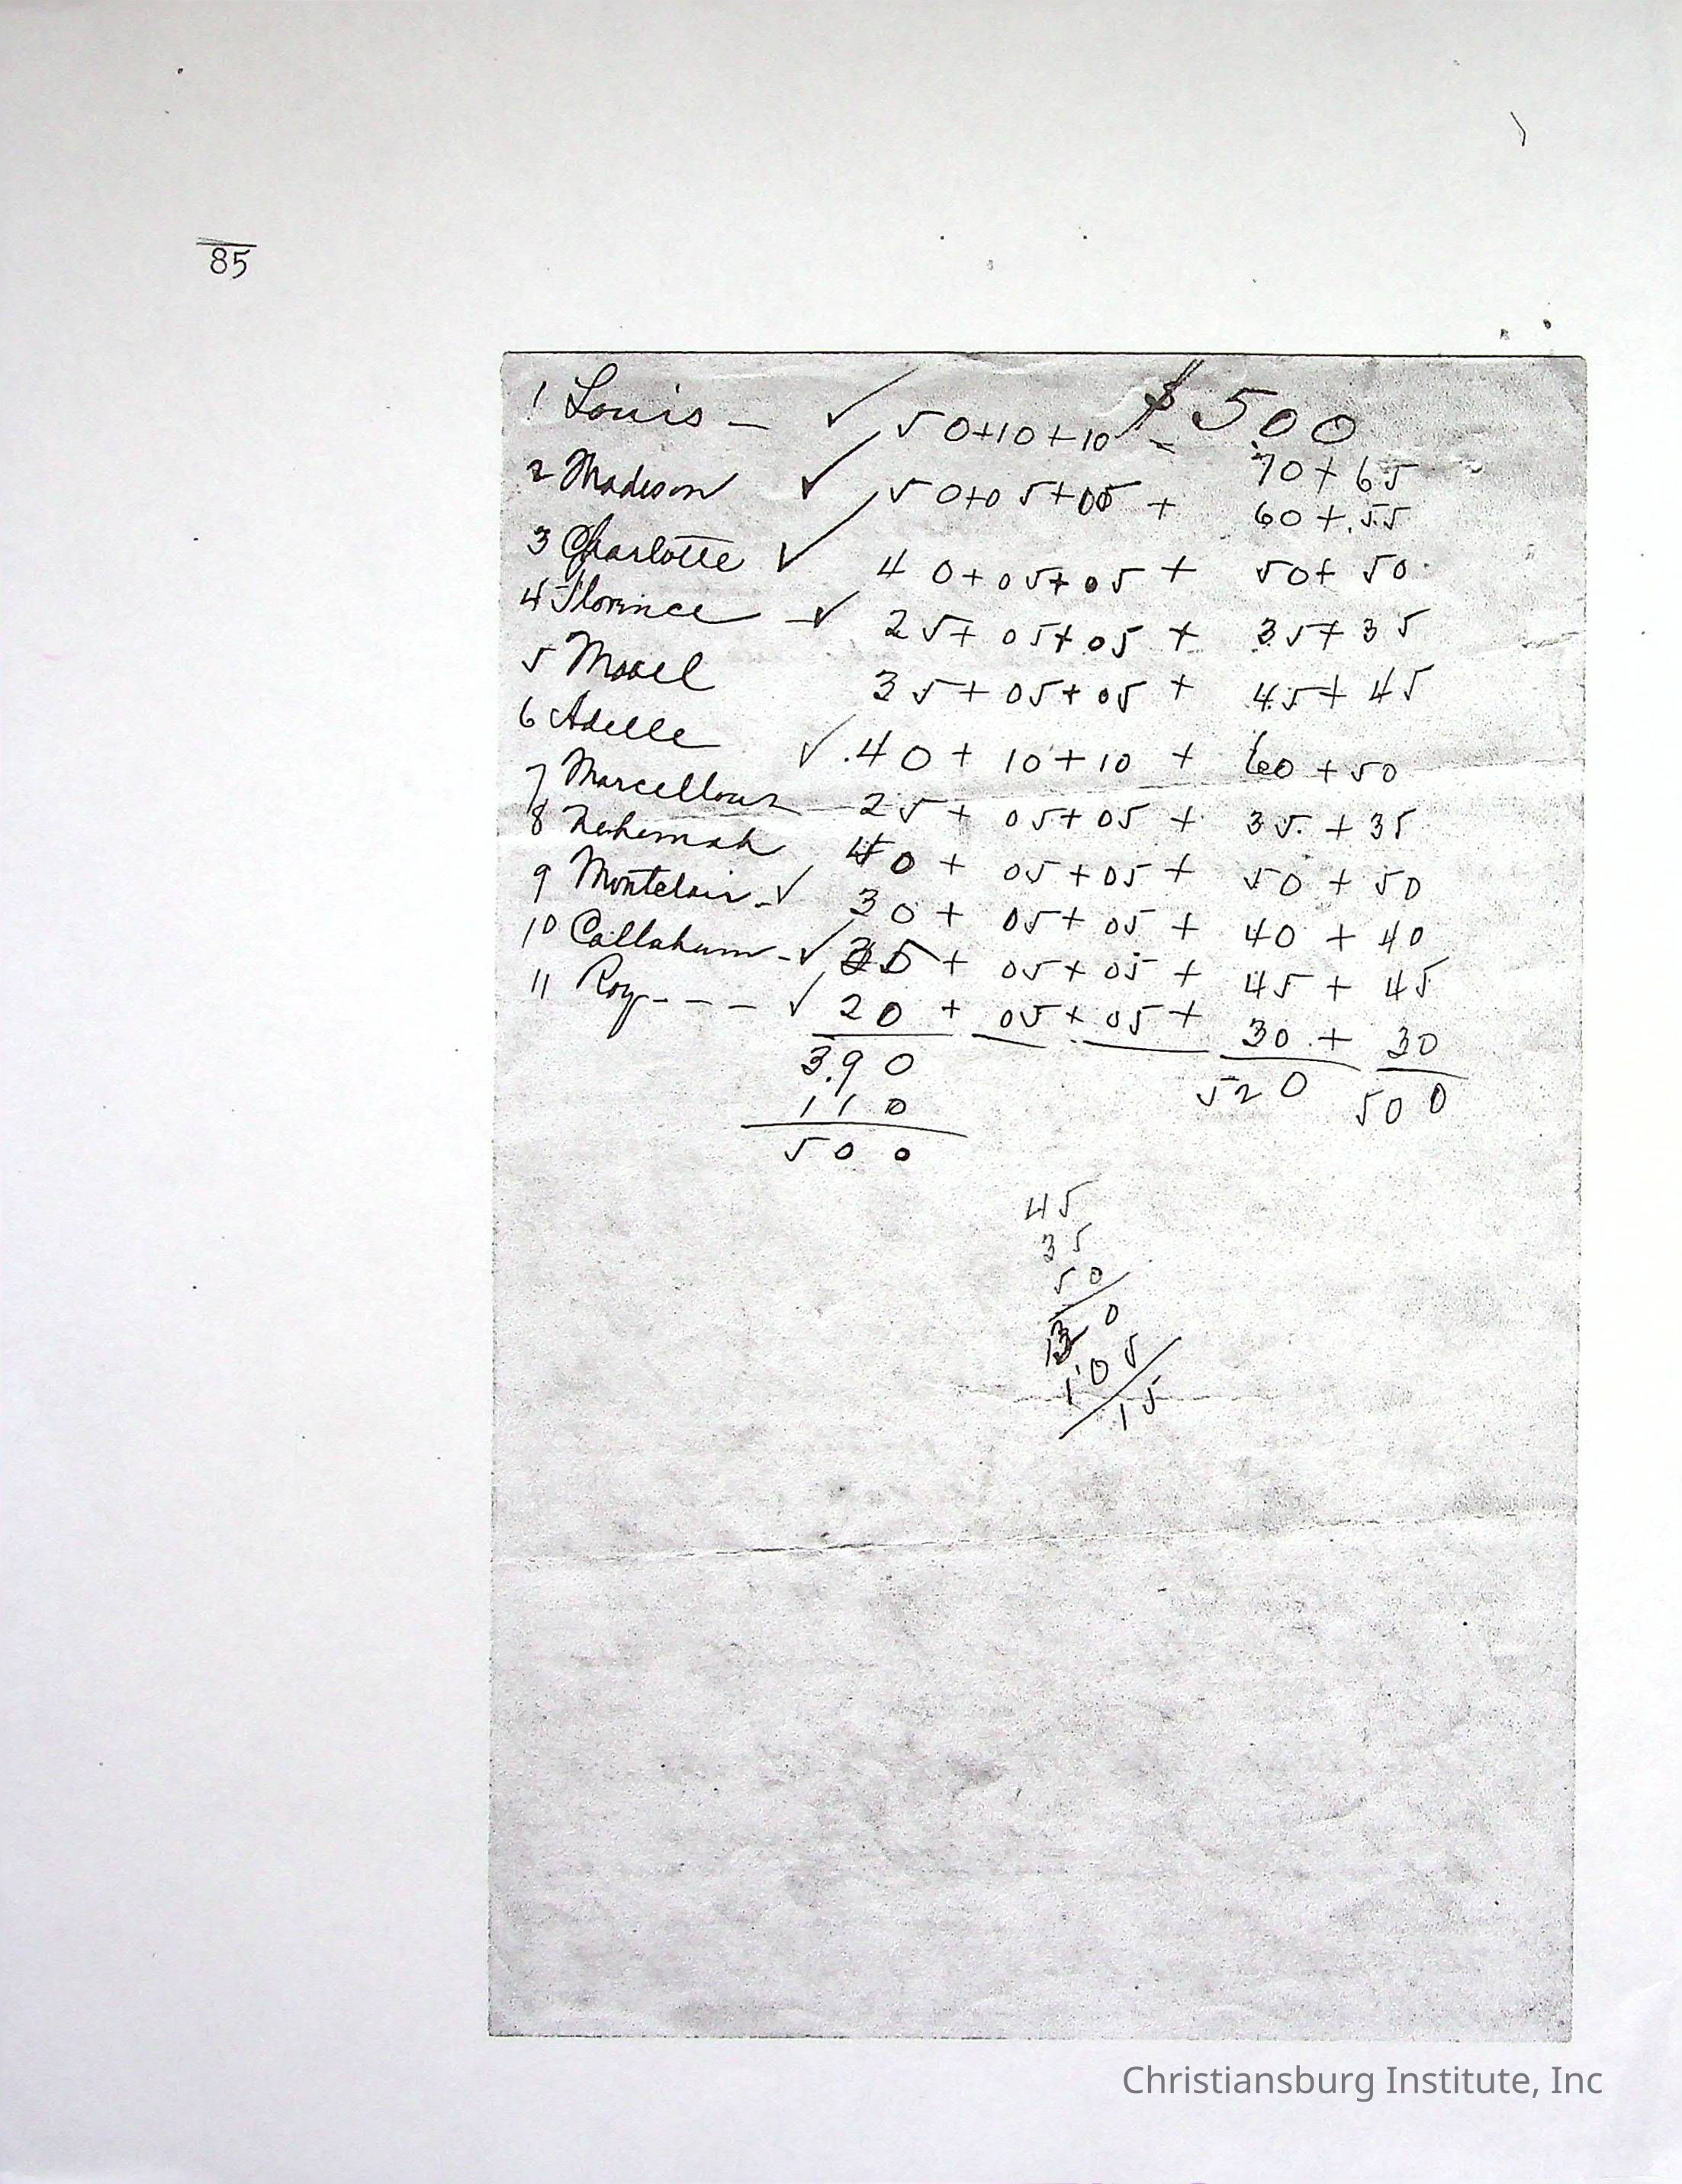 85
$500
1 Louis — ✓ 50+10+10 - 70+65
2 Madison ✓ 50+05+05 + 60+.55
3 Charlotte ✓ 40+05+05 + 50+50
4 Florince - ✓ 25+05+05 + 35+35
5 Mozel 35+05+05 + 45+45
6 Adelle ✓ .40+10+10 + 60+50
7 Marcellous 25+05+05 + 35.+35
8 Nehemah 40+05+05 + 50+50
9 Montclair - ✓ 30+05+05 + 40+40
10 Callahum - ✓ 35+05+05 + 45+45
11 Roy - - - - ✓ 20+05+05+ 30.+30
3.90 520 500
110
500
45
35
50
130
105
15
Christiansburg Institute, Inc